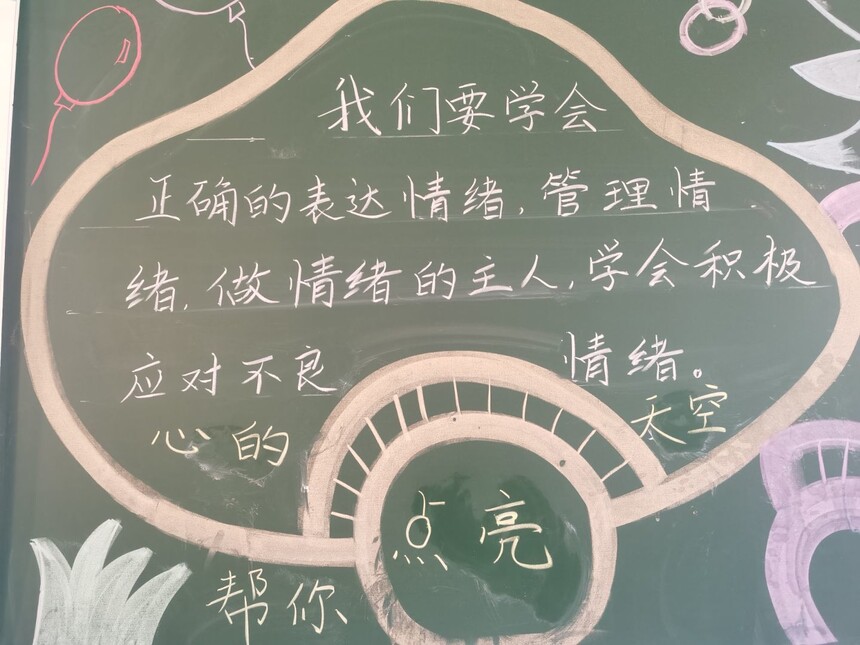 我们要学会
正确的表达情绪,管理情
绪,做情绪的主人,学会积极
应对不良 情绪。
心的 天空
点亮
帮你